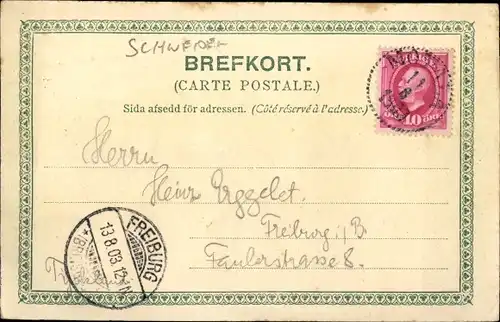 SCHWEDEN
BREFKORT.
(CARTE POSTALE.)
Sida afsedd för adressen. (Côté réservé à l'adresse)
SVERIGE
10 ÖRE
11
8
Herrn
Heinr Uggelet.
Freiburg i/B
Faulerstrasse 8.
FREIBURG
13.8.03. 12-1N